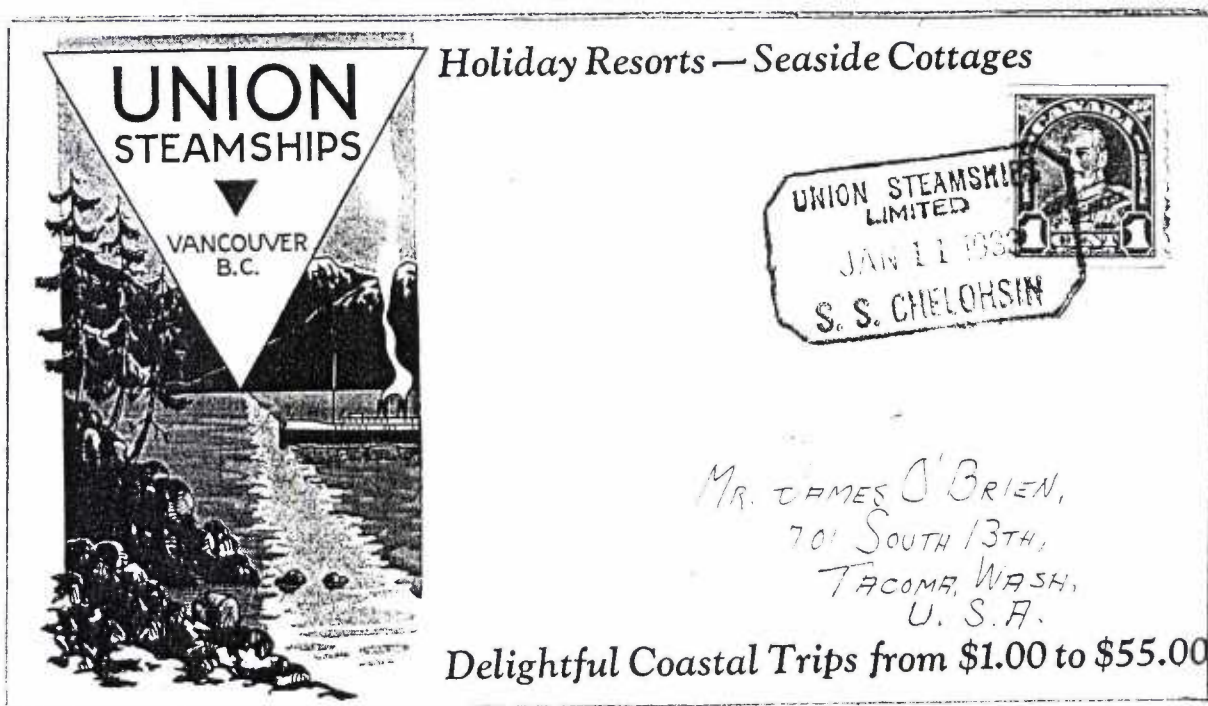 UNION
STEAMSHIPS
VANCOUVER
B.C.
Holiday Resorts — Seaside Cottages
CANADA
1 CENT 1
UNION STEAMSHIPS
LIMITED
JAN 11 193
S. S. CHELOHSIN
MR. JAMES O'BRIEN,
701 SOUTH 13TH,
TACOMA, WASH,
U. S. A.
Delightful Coastal Trips from $1.00 to $55.00